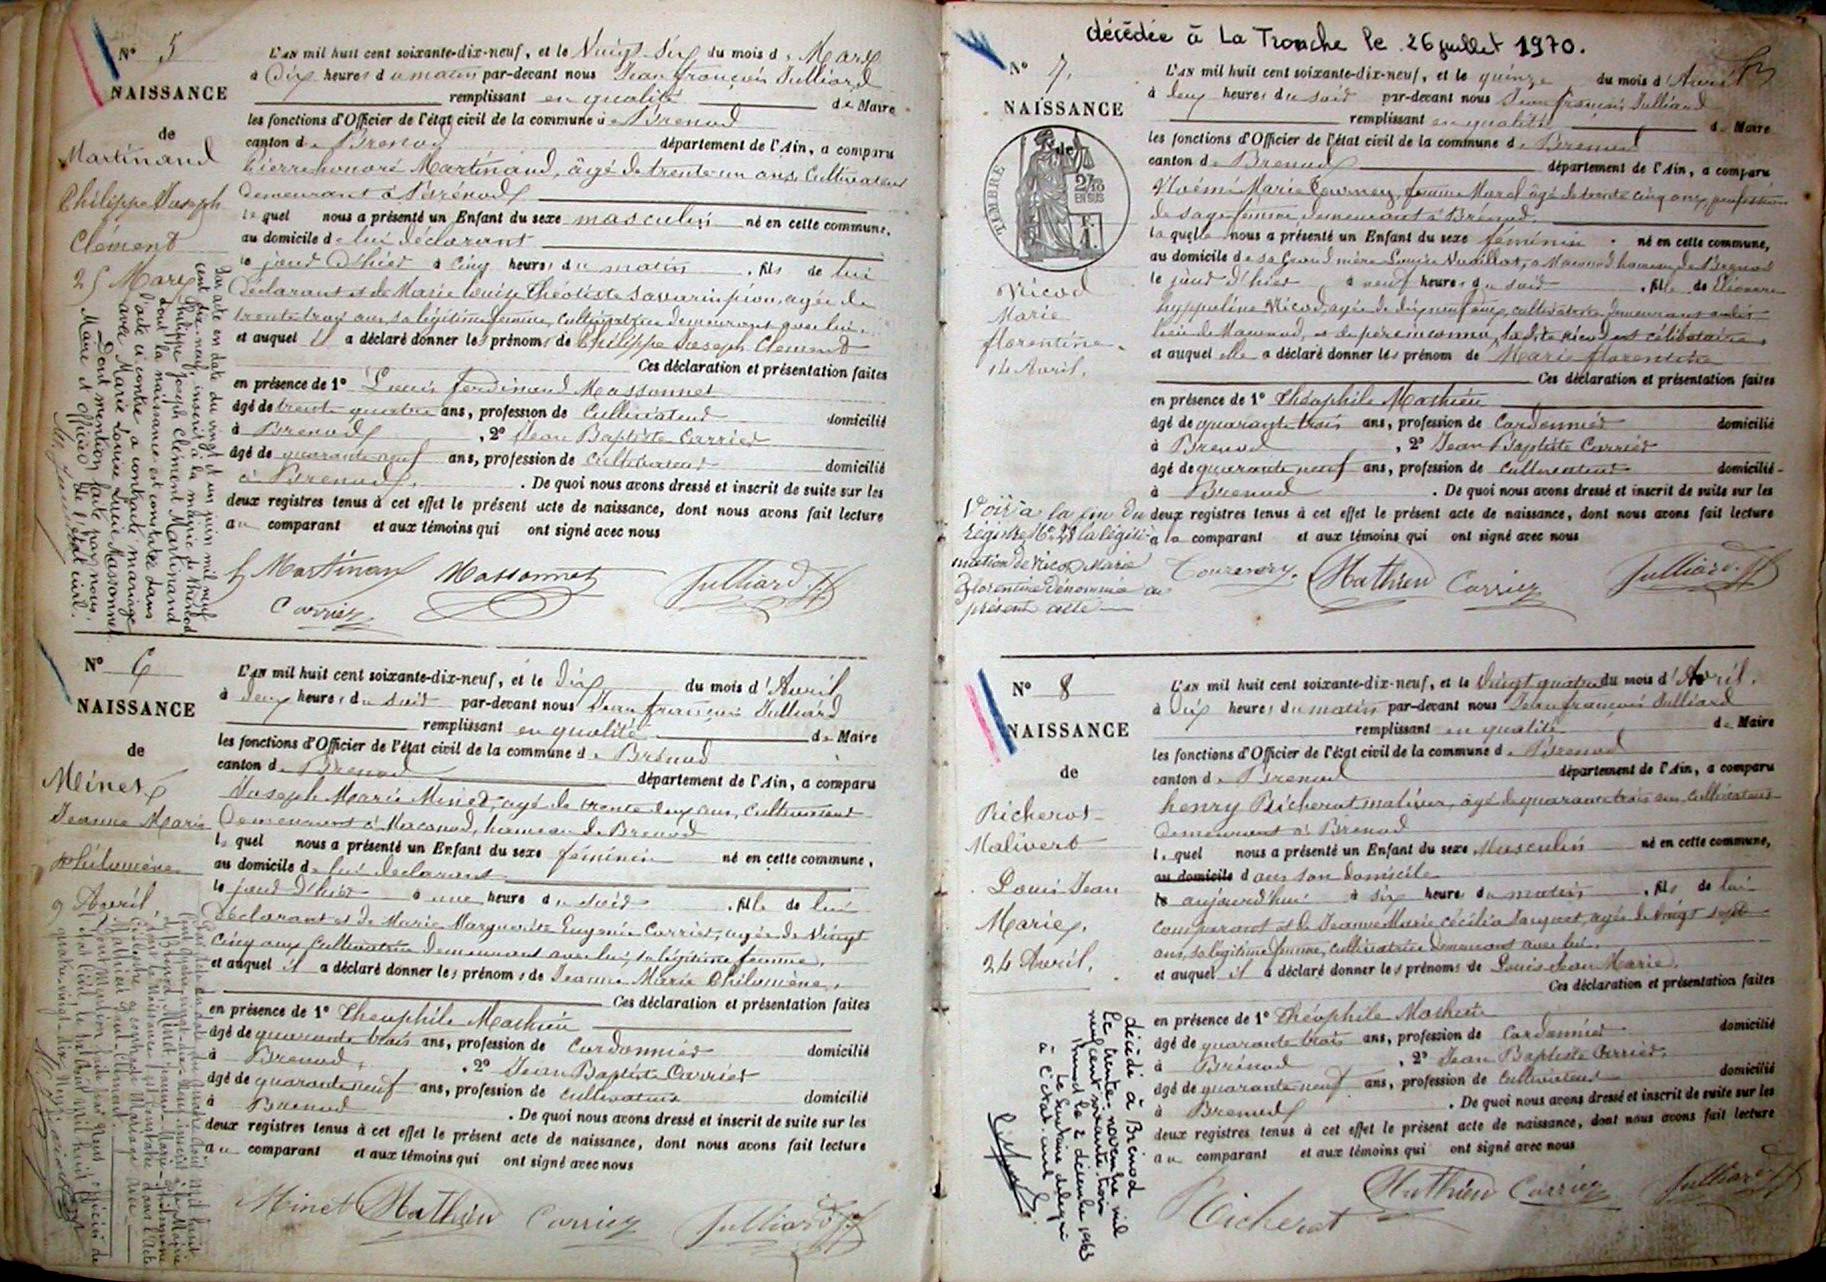 N° 5
NAISSANCE
de
Martinand
Philippe Joseph
Clément
25 Mars
L'AN mil huit cent soixante-dix-neuf, et le Vingt-Six du mois de Mars
à Dix heures du matin par-devant nous Jean françois Julliard
remplissant en qualité de Maire
les fonctions d'Officier de l'état civil de la commune de Brenod
canton de Brenod département de l'Ain, a comparu
Pierre honoré Martinand, âgé de trente un ans, Cultivateur
demeurant à Brénod
lequel nous a présenté un Enfant du sexe masculin né en cette commune,
au domicile de lui déclarant
le jour d'hier à Cinq heures du matin, fils de lui
déclarant et de Marie Louise Théotiste Savarin pion, agée de
trente trois ans, sa légitime femme, cultivatrice demeurant avec lui.
et auquel il a déclaré donner les prénoms de Philippe Joseph Clément
Ces déclaration et présentation faites
en présence de 1° Louis ferdinand Massonnet
âgé de trente quatre ans, profession de Cultivateur domicilié
à Brenod, 2° Jean Baptiste Carrier
âgé de quarante-neuf ans, profession de cultivateur domicilié
à Brenod. De quoi nous avons dressé et inscrit de suite sur les
deux registres tenus à cet effet le présent acte de naissance, dont nous avons fait lecture
au comparant et aux témoins qui ont signé avec nous
Par acte en date du vingt et un juin mil neuf
cent dix-neuf, inscrit à la mairie de Brénod
Philippe Joseph Clément Martinand
dont la naissance est constatée dans
l'acte ci contre, a contracté mariage
avec Marie Louise Lucie Massonnet.
Dont mention faite par nous,
Maire et Officier de l'état civil.
h Martinand Massonnet Julliard
Carrier
N° 6
NAISSANCE
de
Minet
Jeanne Marie
Philomène
9 Avril
L'AN mil huit cent soixante-dix-neuf, et le Dix du mois d'Avril
à Deux heures du soir par-devant nous Jean françois Julliard
remplissant en qualité de Maire
les fonctions d'Officier de l'état civil de la commune de Brénod
canton de Brenod département de l'Ain, a comparu
Joseph Marie Minet, agé de trente deux ans, Cultivateur
Demeurant à Macconod, hameau de Brenod
lequel nous a présenté un Enfant du sexe féminin né en cette commune,
au domicile de lui declarant
le jour d'hier à une heure du soir, fille de lui
Déclarant et de Marie Marguerite Eugénie Carrier, agée de Vingt
Cinq ans Cultivatrice demeurant avec lui, sa légitime femme,
et auquel il a déclaré donner les prénoms de Jeanne Marie Philomène,
Ces déclaration et présentation faites
en présence de 1° Théophile Mathieu
âgé de quarante trois ans, profession de Cordonnier domicilié
à Brenod, 2° Jean Baptiste Carrier
âgé de quarante neuf ans, profession de cultivateur domicilié
à Brenod. De quoi nous avons dressé et inscrit de suite sur les
deux registres tenus à cet effet le présent acte de naissance, dont nous avons fait lecture
au comparant et aux témoins qui ont signé avec nous
Minet Mathieu Carrier Julliard
décédée à La Tronche le 26 juillet 1970.
N° 7.
NAISSANCE
de
TIMBRE
2/10
EN SUS
Nicod
Marie
florentine.
14 Avril.
L'AN mil huit cent soixante-dix-neuf, et le quinze du mois d'Avril
à deux heures du soir par-devant nous Jean françois Julliard
remplissant en qualité de Maire
les fonctions d'Officier de l'état civil de la commune de Brenod
canton de Brenod département de l'Ain, a comparu
Noémé Marie Tournery, femme Murel âgé de trente cinq ans, profession
de sage femme demeurant à Brenod
laquelle nous a présenté un Enfant du sexe féminin né en cette commune,
au domicile de sa Grand mère Louise Vuaillat, à Macconod hameau de Brenod
le jour d'hier à neuf heures du soir, fille de Eléonore
hyppoline Nicod, agée de dix neuf ans, cultivatrice demeurant audit
lieu de Macconod, et de père inconnu, ladite Nicod est célibataire,
et auquel elle a déclaré donner les prénom de Marie florentine
Ces déclaration et présentation faites
en présence de 1° Théophile Mathieu
âgé de quarante trois ans, profession de Cordonnier domicilié
à Brenod, 2° Jean Baptiste Carrier
âgé de quarante neuf ans, profession de cultivateur domicilié
à Brenod. De quoi nous avons dressé et inscrit de suite sur les
deux registres tenus à cet effet le présent acte de naissance, dont nous avons fait lecture
à la comparant et aux témoins qui ont signé avec nous
Voir à la fin du
régistre N° 28 la légiti-
mation de Nicod Marie
Florentine Dénommée au
présent acte
Tournery. Mathieu Carrier Julliard
N° 8
NAISSANCE
de
Richerot
Malivert
Louis Jean
Marie,
24 Avril,
L'AN mil huit cent soixante-dix-neuf, et le Vingt quatre du mois d'Avril.
à Dix heures du matin par-devant nous Jean françois Julliard
remplissant en qualité de Maire
les fonctions d'Officier de l'état civil de la commune de Brenod
canton de Brenod département de l'Ain, a comparu
henry Richerot malivert, âgé de quarante trois ans, cultivateur
Demeurant à Brenod
lequel nous a présenté un Enfant du sexe Masculin né en cette commune,
au domicile dans son domicile
le aujourd'hui à six heures du matin, fils de lui
comparant et de Jeanne Marie Cécilia Jacquet, agée de Vingt sept
ans, sa légitime femme, cultivatrice demeurant avec lui.
et auquel il a déclaré donner les prénoms de Louis Jean Marie,
Ces déclaration et présentation faites
en présence de 1° Théophile Mathieu
âgé de quarante trois ans, profession de Cordonnier domicilié
à Brénod, 2° Jean Baptiste Carrier,
âgé de quarante neuf ans, profession de Cultivateur domicilié
à Brenod. De quoi nous avons dressé et inscrit de suite sur les
deux registres tenus à cet effet le présent acte de naissance, dont nous avons fait lecture
au comparant et aux témoins qui ont signé avec nous
décédé à Brénod
le trente novembre mil
neuf cent soixante-trois
Brénod le 2 décembre 1963
le Secrétaire délégué
à l'état-civil
Richerot Mathieu Carrier Julliard